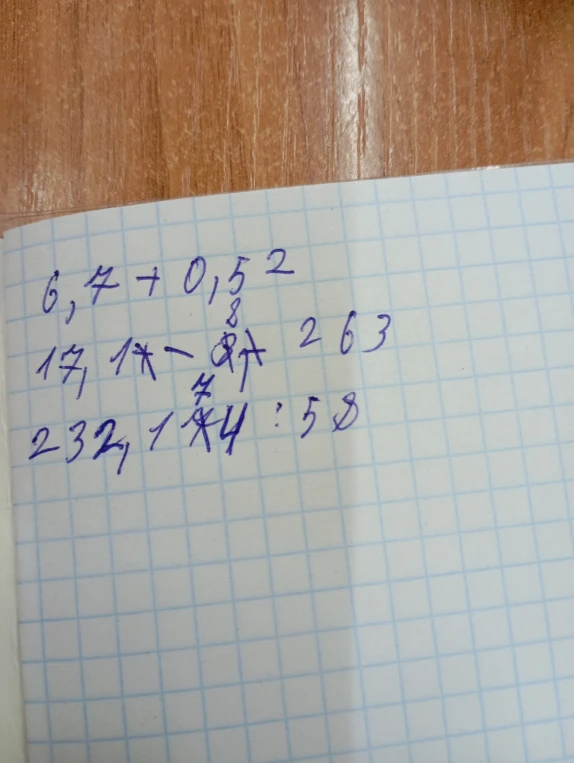 6,7 + 0,52
17,1 - 8, 263
232,174 : 58